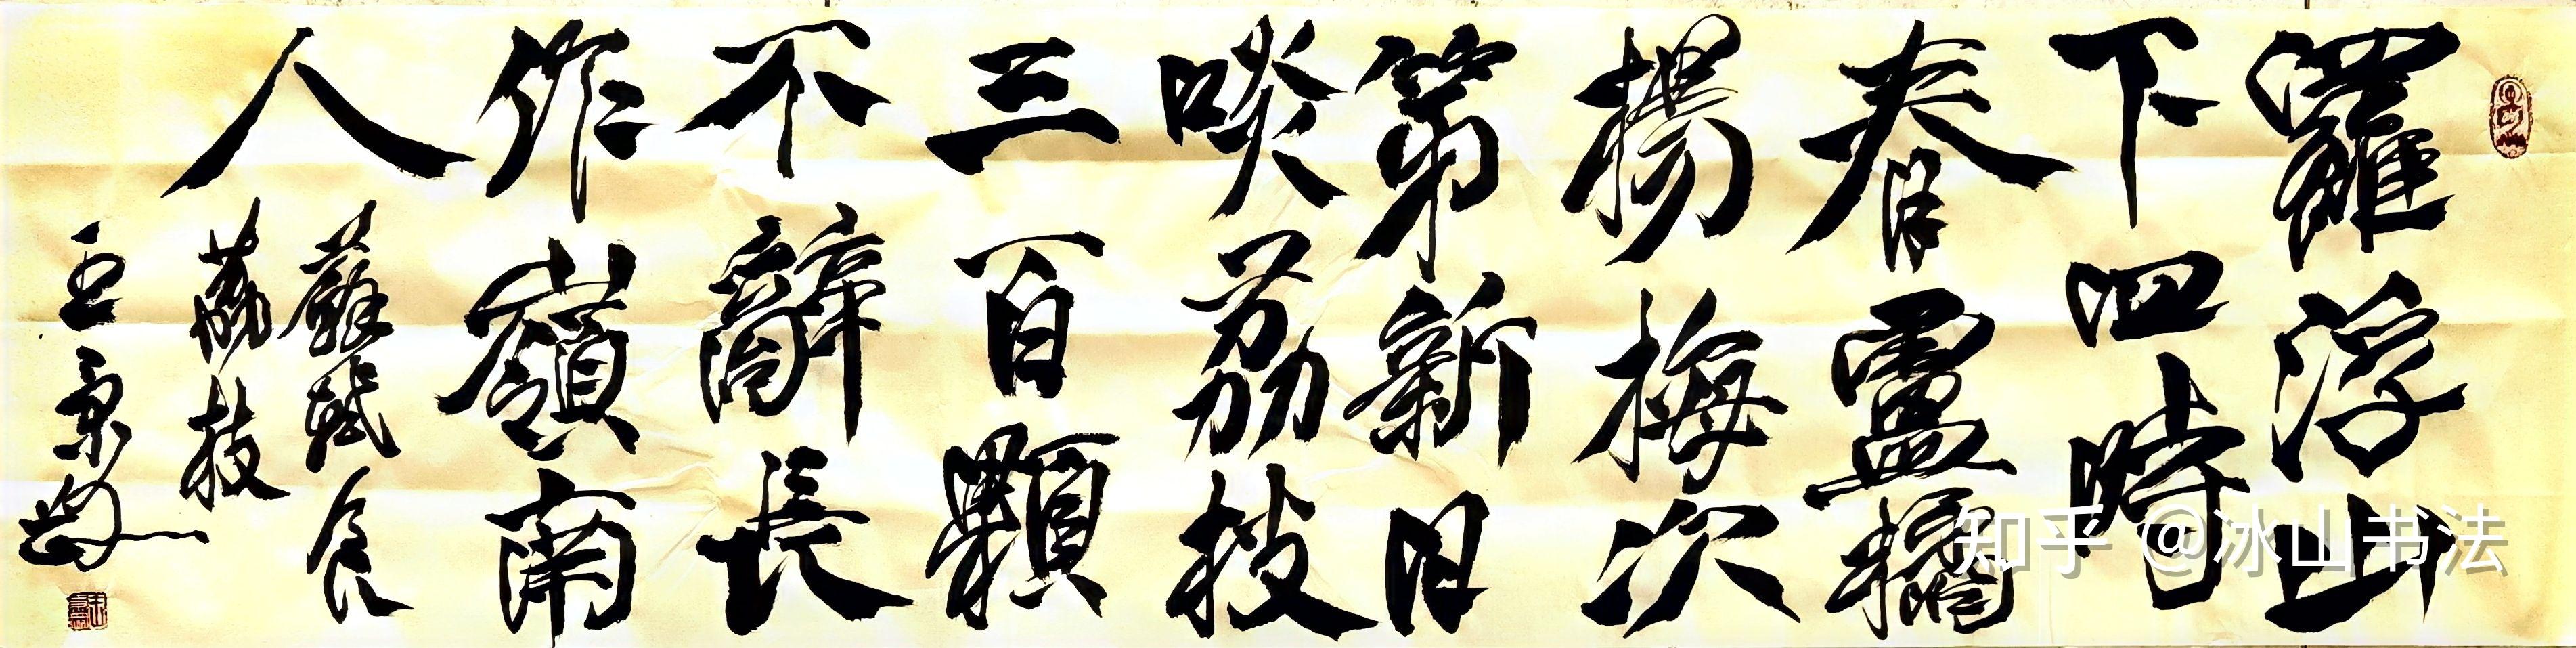 羅浮山
下四時
春盧橘
楊梅次
第新日
啖荔枝
三百顆
不辭長
作嶺南
人
蘇軾食
荔枝
知乎 @冰山书法